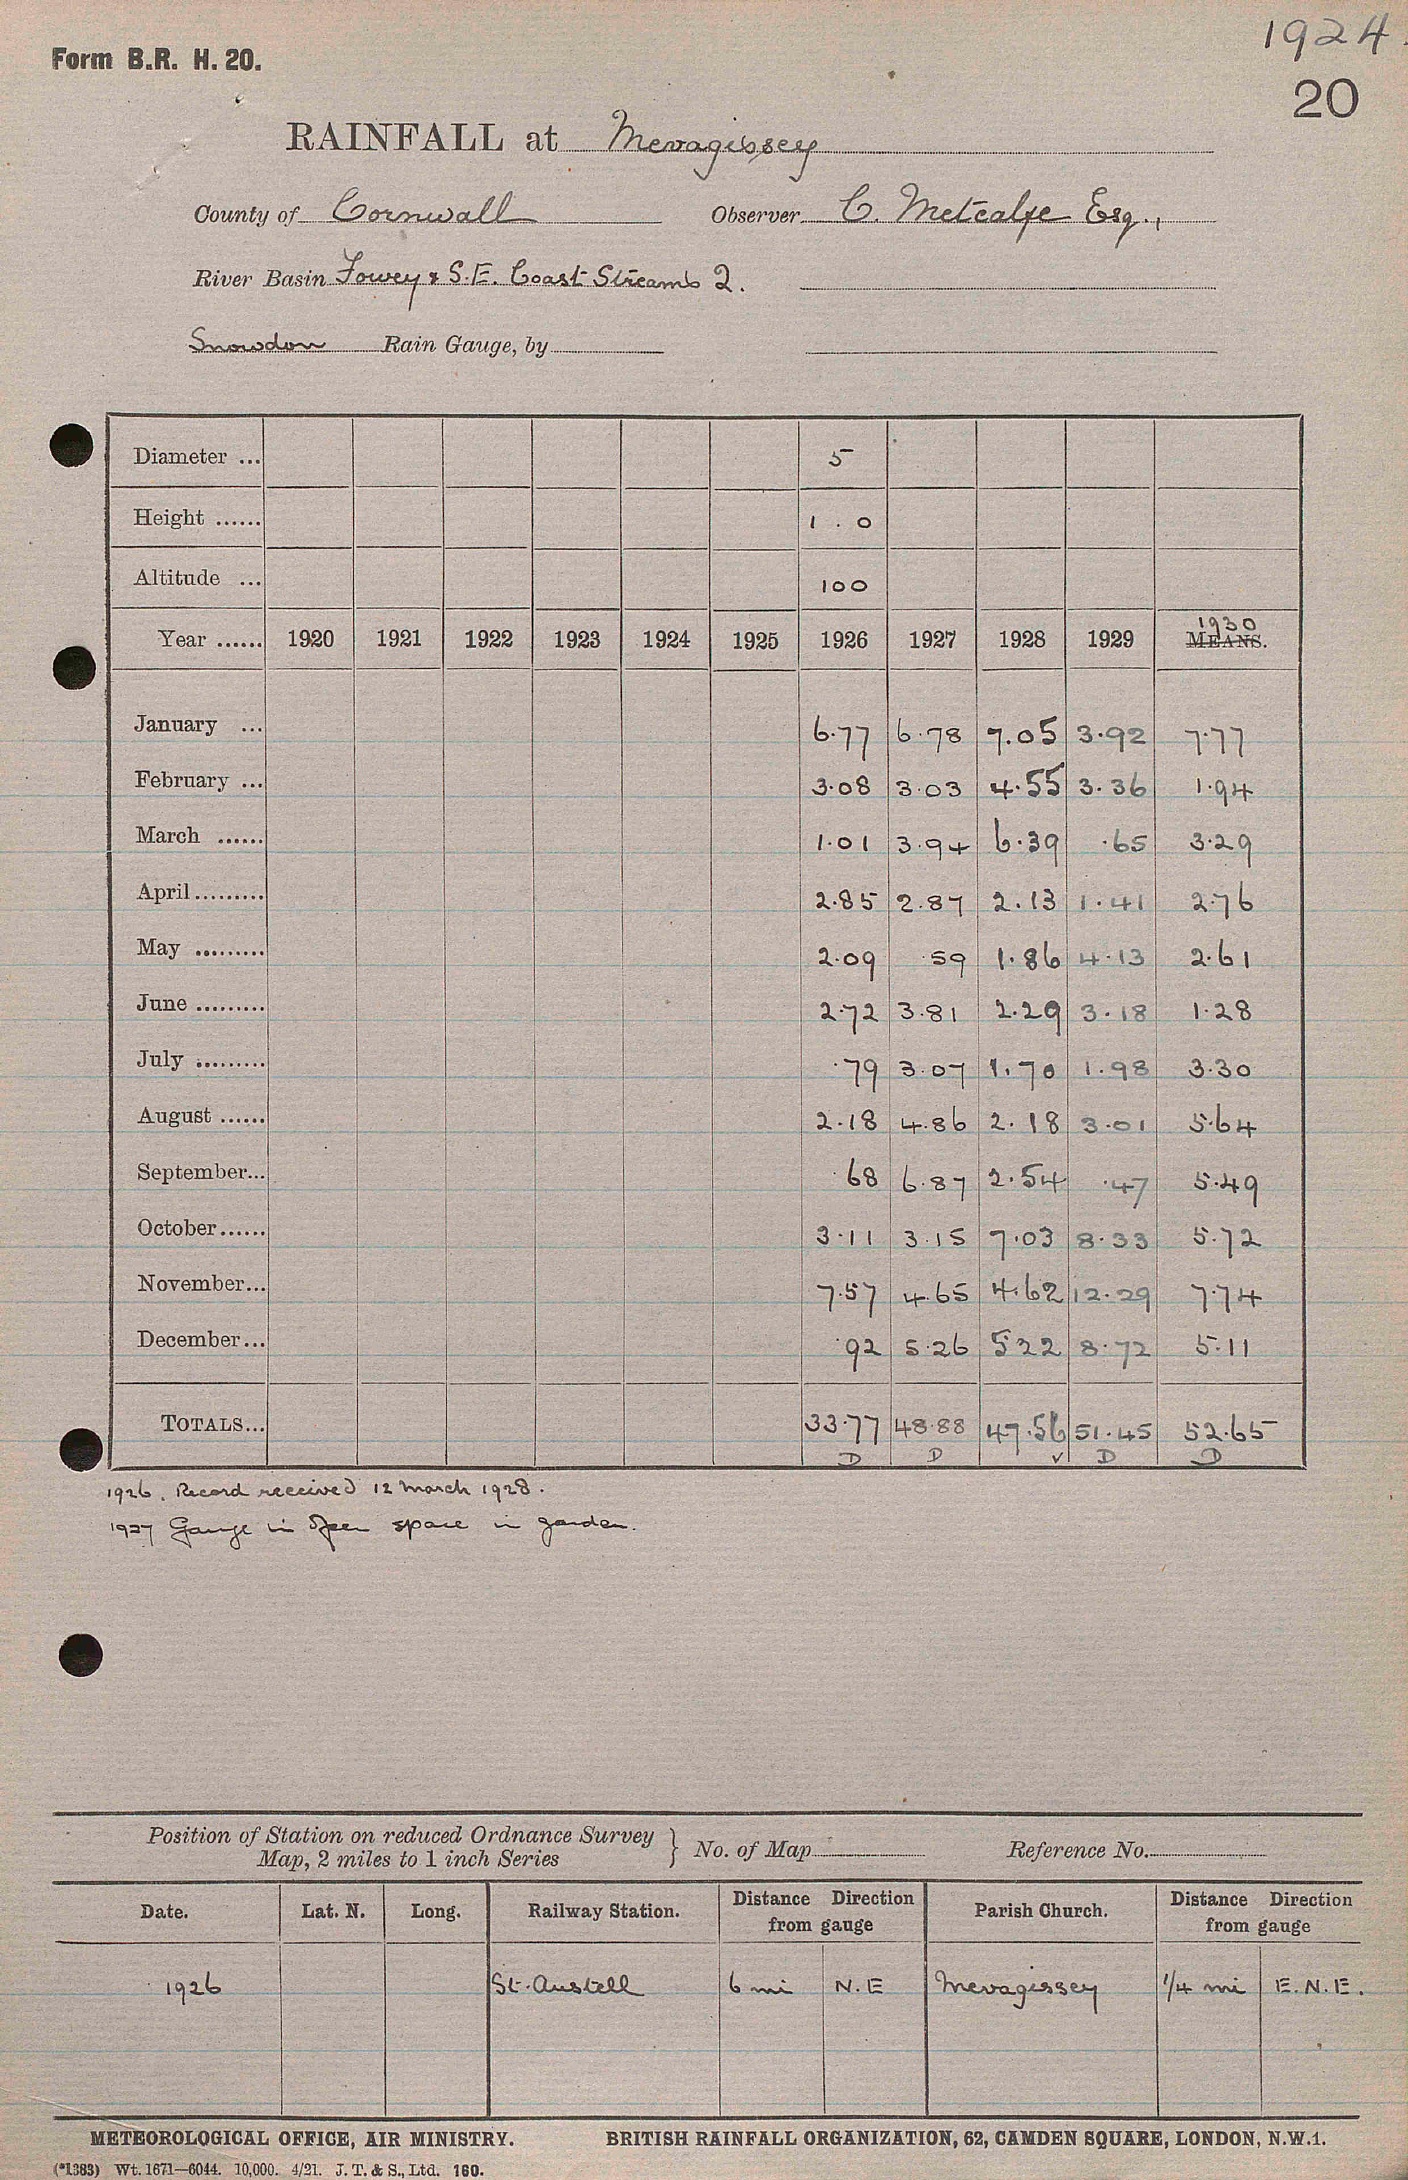 1924.
Form B.R. H. 20.
20
RAINFALL at Mevagissey
County of Cornwall Observer C. Metcalfe Esq.,
River Basin Fowey & S.E. Coast Streams 2.
Snowdon Rain Gauge, by
Diameter ... 5
Height ...... 1 . 0
Altitude ... 100
1930
Year ...... 1920 1921 1922 1923 1924 1925 1926 1927 1928 1929 MEANS.
January ... 6.77 6.78 7.05 3.92 7.77
February ... 3.08 3.03 4.55 3.36 1.94
March ...... 1.01 3.94 6.39 .65 3.29
April......... 2.85 2.87 2.13 1.41 2.76
May ......... 2.09 .59 1.86 4.13 2.61
June ......... 2.72 3.81 2.29 3.18 1.28
July ......... .79 3.07 1.70 1.98 3.30
August ...... 2.18 4.86 2.18 3.01 5.64
September... .68 6.87 2.54 .47 5.49
October...... 3.11 3.15 7.03 8.33 5.72
November... 7.57 4.65 4.62 12.29 7.74
December... .92 5.26 5.22 8.72 5.11
TOTALS... 33.77 48.88 47.56 51.45 52.65
D D v D D
1926. Record received 12 March 1928.
1927 Gauge in open space in garden.
Position of Station on reduced Ordnance Survey
Map, 2 miles to 1 inch Series } No. of Map Reference No.
Date. Lat. N. Long. Railway Station. Distance Direction from gauge Parish Church. Distance Direction from gauge
1926 St. Austell 6 mi N.E Mevagissey 1/4 mi E.N.E.
METEOROLOGICAL OFFICE, AIR MINISTRY. BRITISH RAINFALL ORGANIZATION, 62, CAMDEN SQUARE, LONDON, N.W.1.
(*1383) Wt. 1671—6044. 10,000. 4/21. J. T. & S., Ltd. 160.